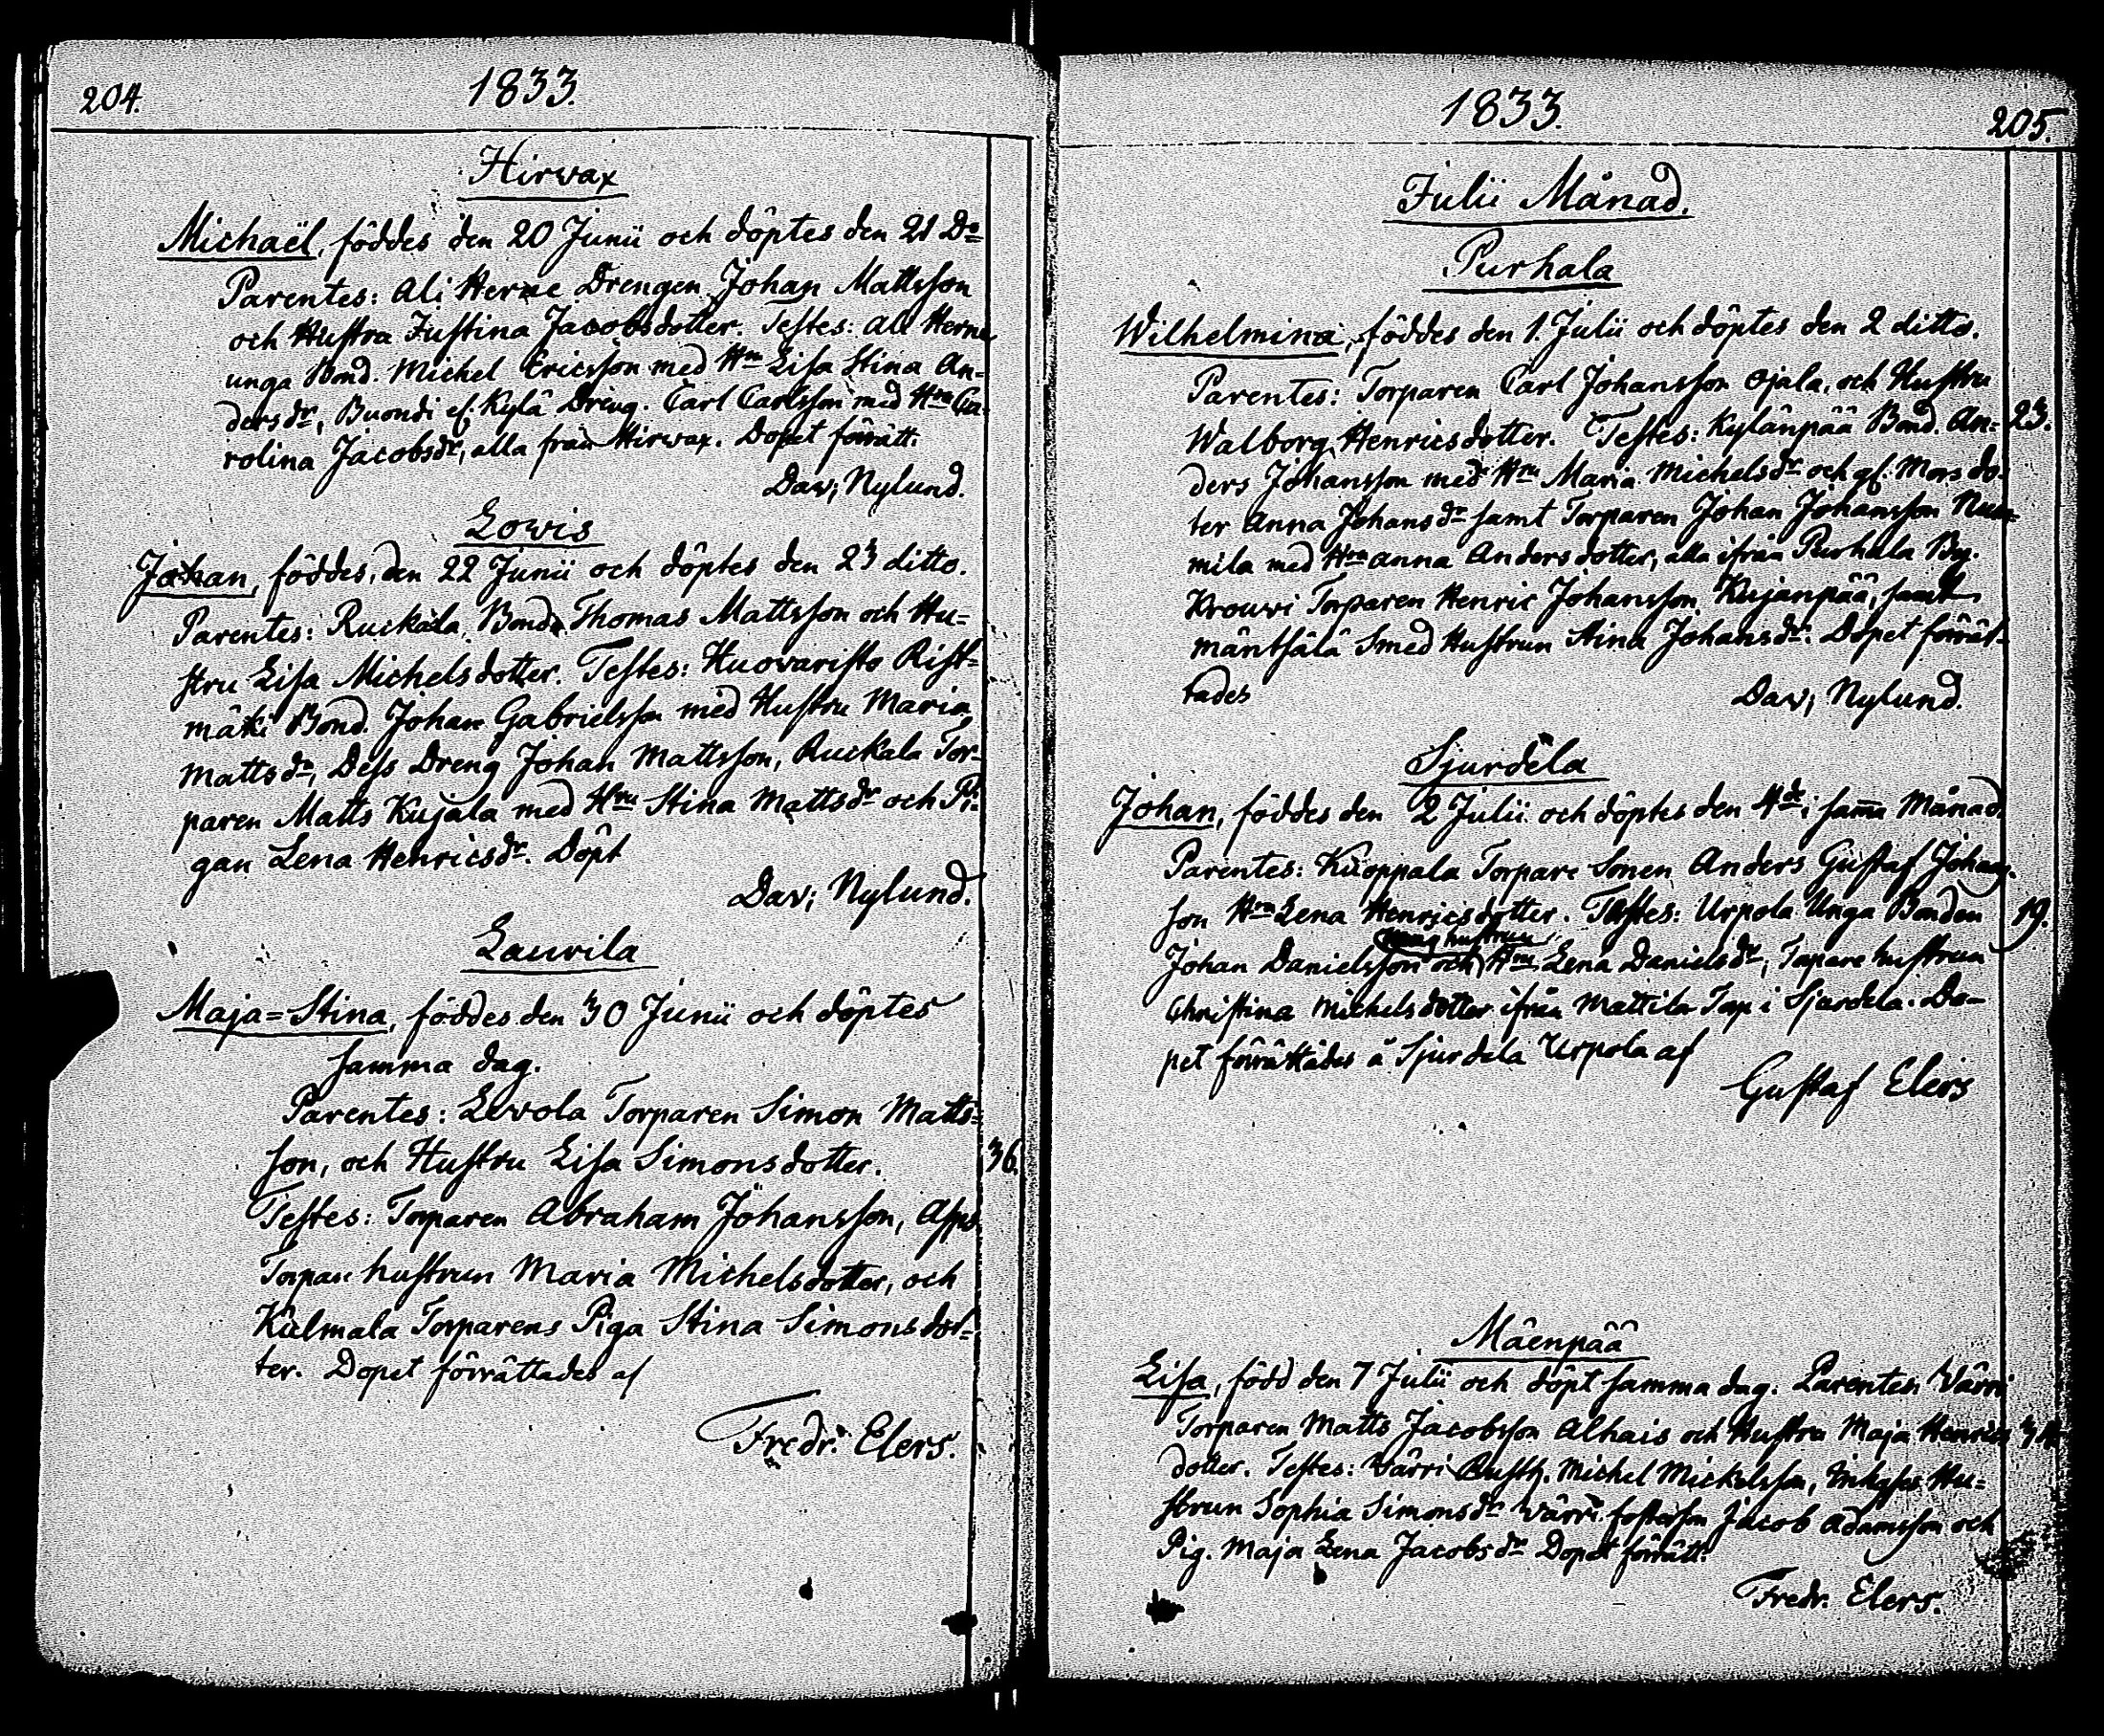 204.
1833.
Hirwax
Michaël, föddes den 20 Junii och döptes den 21 Do
Parentes: Ali Herne Drengen Johan Mattsson
och Hustru Justina Jacobsdotter. Testes: Ali Herne
unga Bond. Michel Ericsson med Hru Lisa Stina An=
dersdr, Buondi Kylä Dreng. Carl Carlsson med Hru Ca=
rolina Jacobsdr, alla från Hirwax. Dopet förrätt.
Dav; Nylund.
Lowis
Johan, föddes den 22 Junii och döptes den 23 ditto.
Parentes: Ruckala Bond. Thomas Mattsson och Hu=
stru Lisa Michelsdotter. Testes: Huovaristo Rist=
mäki Bond. Johan Gabrielsson med Hustru Maria
Mattsdr, Dess Dreng Johan Mattsson, Ruckala Tor=
paren Matts Kujala med Hru Stina Mattsdr och Pi=
gan Lena Henricsdr. Döpt
Dav; Nylund.
Lauvila
Maja=Stina, föddes den 30 Junii och döptes
samma dag.
Parentes: Levola Torparen Simon Matts=
son, och Hustru Lisa Simonsdotter.
36.
Testes: Torparen Abraham Johansson,
Torpare hustrun Maria Michelsdotter, och
Kulmala Torparens Piga Stina Simonsdot=
ter. Dopet förrättades af
Fredr. Elers.
1833.
205.
Julii Månad.
Purhala
Wilhelmina, föddes den 1. Julii och döptes den 2 ditto.
Parentes: Torparen Carl Johansson Ojala, och Hustru
Walborg Henricsdotter. Testes: Kylänpää Bond. An=
23.
ders Johansson med Hru Maria Michelsdr och gl: Mors do=
ter Anna Johansdr samt Torparen Johan Johansson Num=
mila med Hru Anna Andersdotter, alla ifrån Purhala By.
Krouwi Torparen Henric Johansson Kujanpää, samt
mäntsälä Smed Hustrun Stina Johansdr. Dopet förrät=
tades
Dav; Nylund.
Sjurdela
Johan, föddes den 2 Julii och döptes den 4de i samma Månad.
Parentes: Kuoppala Torpare Sonen Anders Gustaf Johans=
son Hru Lena Henricsdotter. Testes: Urpola Unga Bonden
19.
Johan Danielsson och Hru Lena Danielsdr, Torpare hustrun
Christina Michelsdotter ifrån Mattila Torp i Sjurdela. Do=
pet förrättades å Sjurdela Urpola af
Gustaf Elers
Mäenpää
Lisa, född den 7 Julii och döpt samma dag. Parentes Wärri
Torparen Matts Jacobsson Alhais och Hustru Maja Henrics
dotter. Testes: Wärri Rusth. Michel Mickelsson, Hu=
strun Sophia Simonsdr Wärri fosterson Jacob Adamsson och
Pig. Maja Lena Jacobsdr Dopet förrätt:
Fredr. Elers.